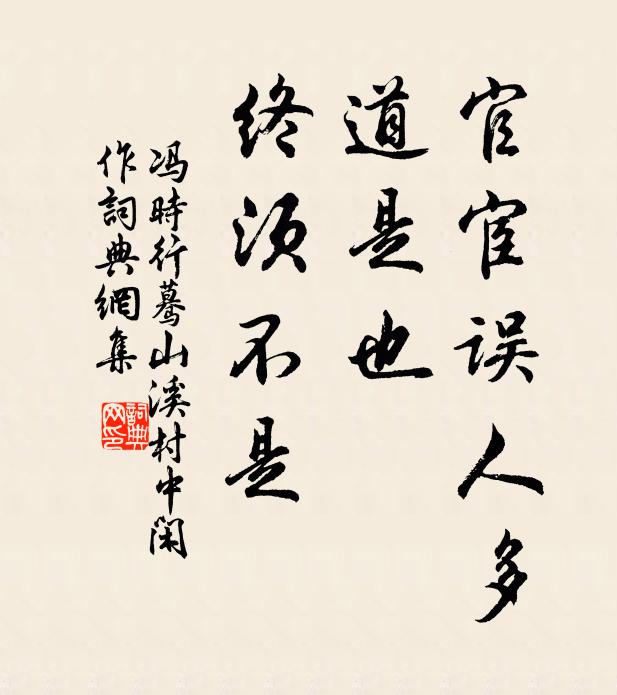 官宦误人多
道是也
终须不是
冯時行驀山溪村中闲
作詞典網集
詞典
网印